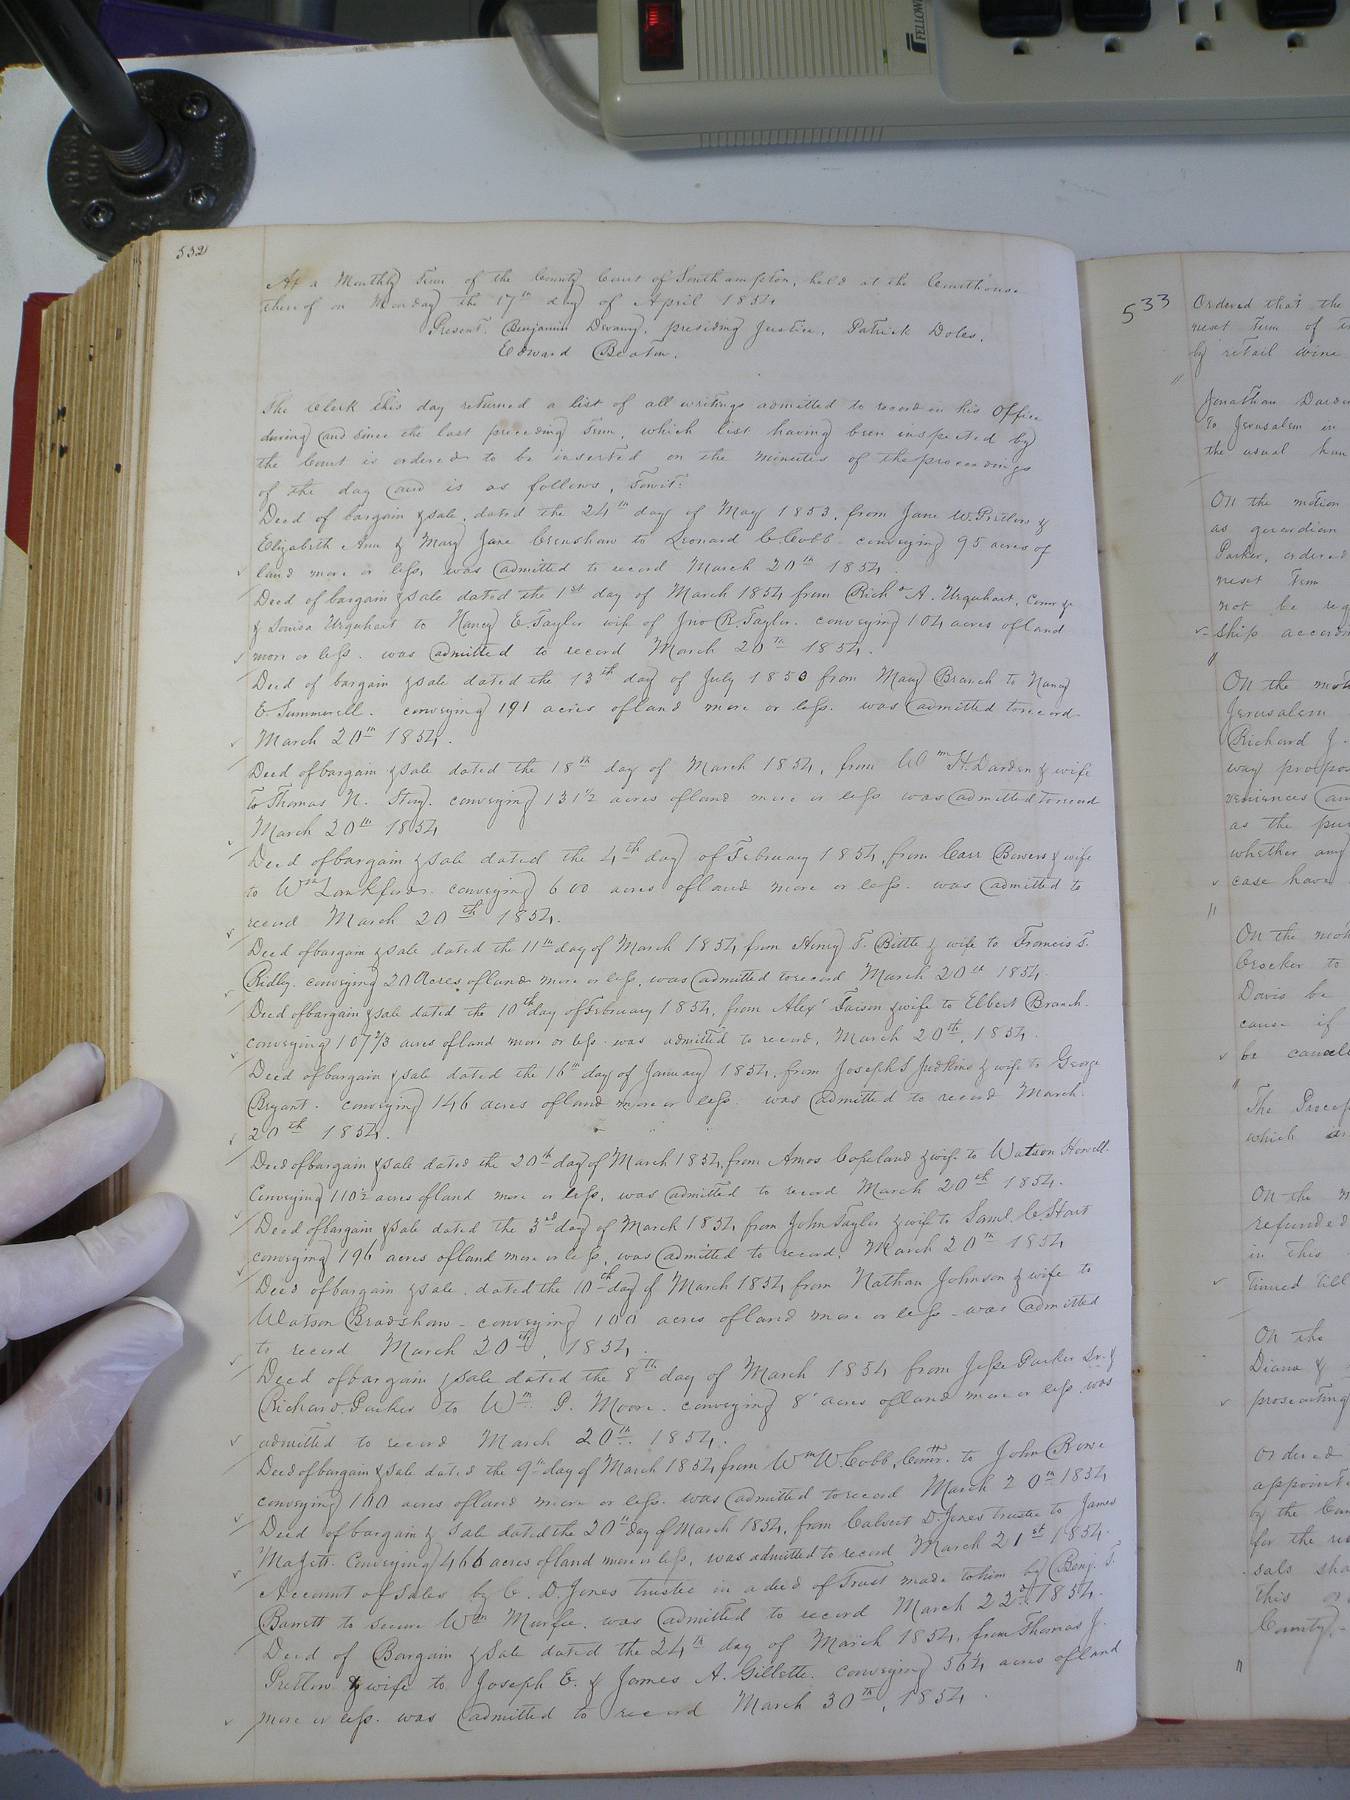 FELLOWE
532
At a Monthly Term of the County Court of Southampton, held at the Courthouse
thereof on Monday the 17th day of April 1854
Present. Benjamin Devany, presiding Justice, Patrick Doles,
Edward Beaton.
The Clerk this day returned a list of all writings admitted to record in his Office
during and since the last preceding Term, which list having been inspected by
the Court is ordered to be inserted on the minutes of the proceedings
of the day and is as follows, Towit:
Deed of bargain & sale, dated the 24th day of May 1853, from Jane W. Pretlow &
Elizabeth Ann & Mary Jane Crenshaw to Leonard C. Cobb conveying 95 acres of
land more or less, was admitted to record March 20th 1854.
Deed of bargain & sale dated the 1st day of March 1854 from Richd A. Urquhart, Comr &c
& Louisa Urquhart to Nancy E. Taylor wife of Jno R. Taylor. conveying 104 acres of land
more or less. was admitted to record March 20th 1854.
Deed of bargain & sale dated the 13th day of July 1850 from Mary Branch to Nancy
E. Summerell. conveying 191 acres of land more or less. was admitted to record
March 20th 1854.
Deed of bargain & sale dated the 18th day of March 1854, from Wm H. Darden & wife
to Thomas N. conveying 131 1/2 acres of land more or less was admitted to record
March 20th 1854
Deed of bargain & sale dated the 4th day of February 1854, from Carr Bowers & wife
to Wm Lankford. conveying 600 acres of land more or less. was admitted to
record March 20th 1854.
Deed of bargain & sale dated the 11th day of March 1854 from Henry T. Bittle & wife to Francis T.
Ridley. conveying 20 Acres of land more or less, was admitted to record March 20th 1854.
Deed of bargain & sale dated the 10th day of February 1854, from Alexr Faison & wife to Elbert Branch.
conveying 107 2/3 acres of land more or less was admitted to record, March 20th, 1854.
Deed of bargain & sale dated the 16th day of January 1854, from Joseph S Judkins & wife to George
Bryant. conveying 146 acres of land more or less. was admitted to record March
20th 1854.
Deed of bargain & sale dated the 20th day of March 1854, from Amos Copeland & wife to Watson Howell.
Conveying 110 1/2 acres of land more or less, was admitted to record March 20th 1854.
Deed of bargain & sale dated the 3rd day of March 1854 from John Taylor & wife to Saml. C.
conveying 196 acres of land more or less, was admitted to record, March 20th 1854
Deed of bargain & sale. dated the 10th day of March 1854 from Nathan Johnson & wife to
Watson Bradshaw - conveying 100 acres of land more or less - was admitted
to record March 20th, 1854.
Deed of bargain & sale dated the 8th day of March 1854 from Jesse Parker Sr. &
Richard Parker to Wm. P. Moore. conveying 8 acres of land more or less was
admitted to record March 20th. 1854.
Deed of bargain & sale dated the 9th day of March 1854 from Wm W. Cobb, Comr. to John Rowe
conveying 100 acres of land more or less. was admitted to record March 20th 1854
Deed of bargain & sale dated the 20th day of March 1854, from Calvert D. Jones trustee to James
Majett. Conveying 466 acres of land more or less, was admitted to record March 21st 1854.
Account of Sales by C. D. Jones trustee in a deed of Trust made to him by Benj. T.
Barrett to secure Wm Murfee. was admitted to record March 22d. 1854.
Deed of Bargain & Sale dated the 24th day of March 1854, from Thomas J.
Pretlow & wife to Joseph E. & James A. Gillette. conveying 564 acres of land
more or less. was admitted to record March 30th, 1854.
533
Ordered that the
next term of
by retail wine
Jonathan
To Jerusalem in
the usual
On the motion
as guardian
Parker, ordered
next Term
not be
ship
On the
Jerusalem
Richard J.
way
veniences
as the
whether any
case have
On the
Crocker to
Davis be
cause if
be
The
which
On the
refunded
in this
On the
Diana &
prosecuting
Ordered
by the
for the
sals
this
County.